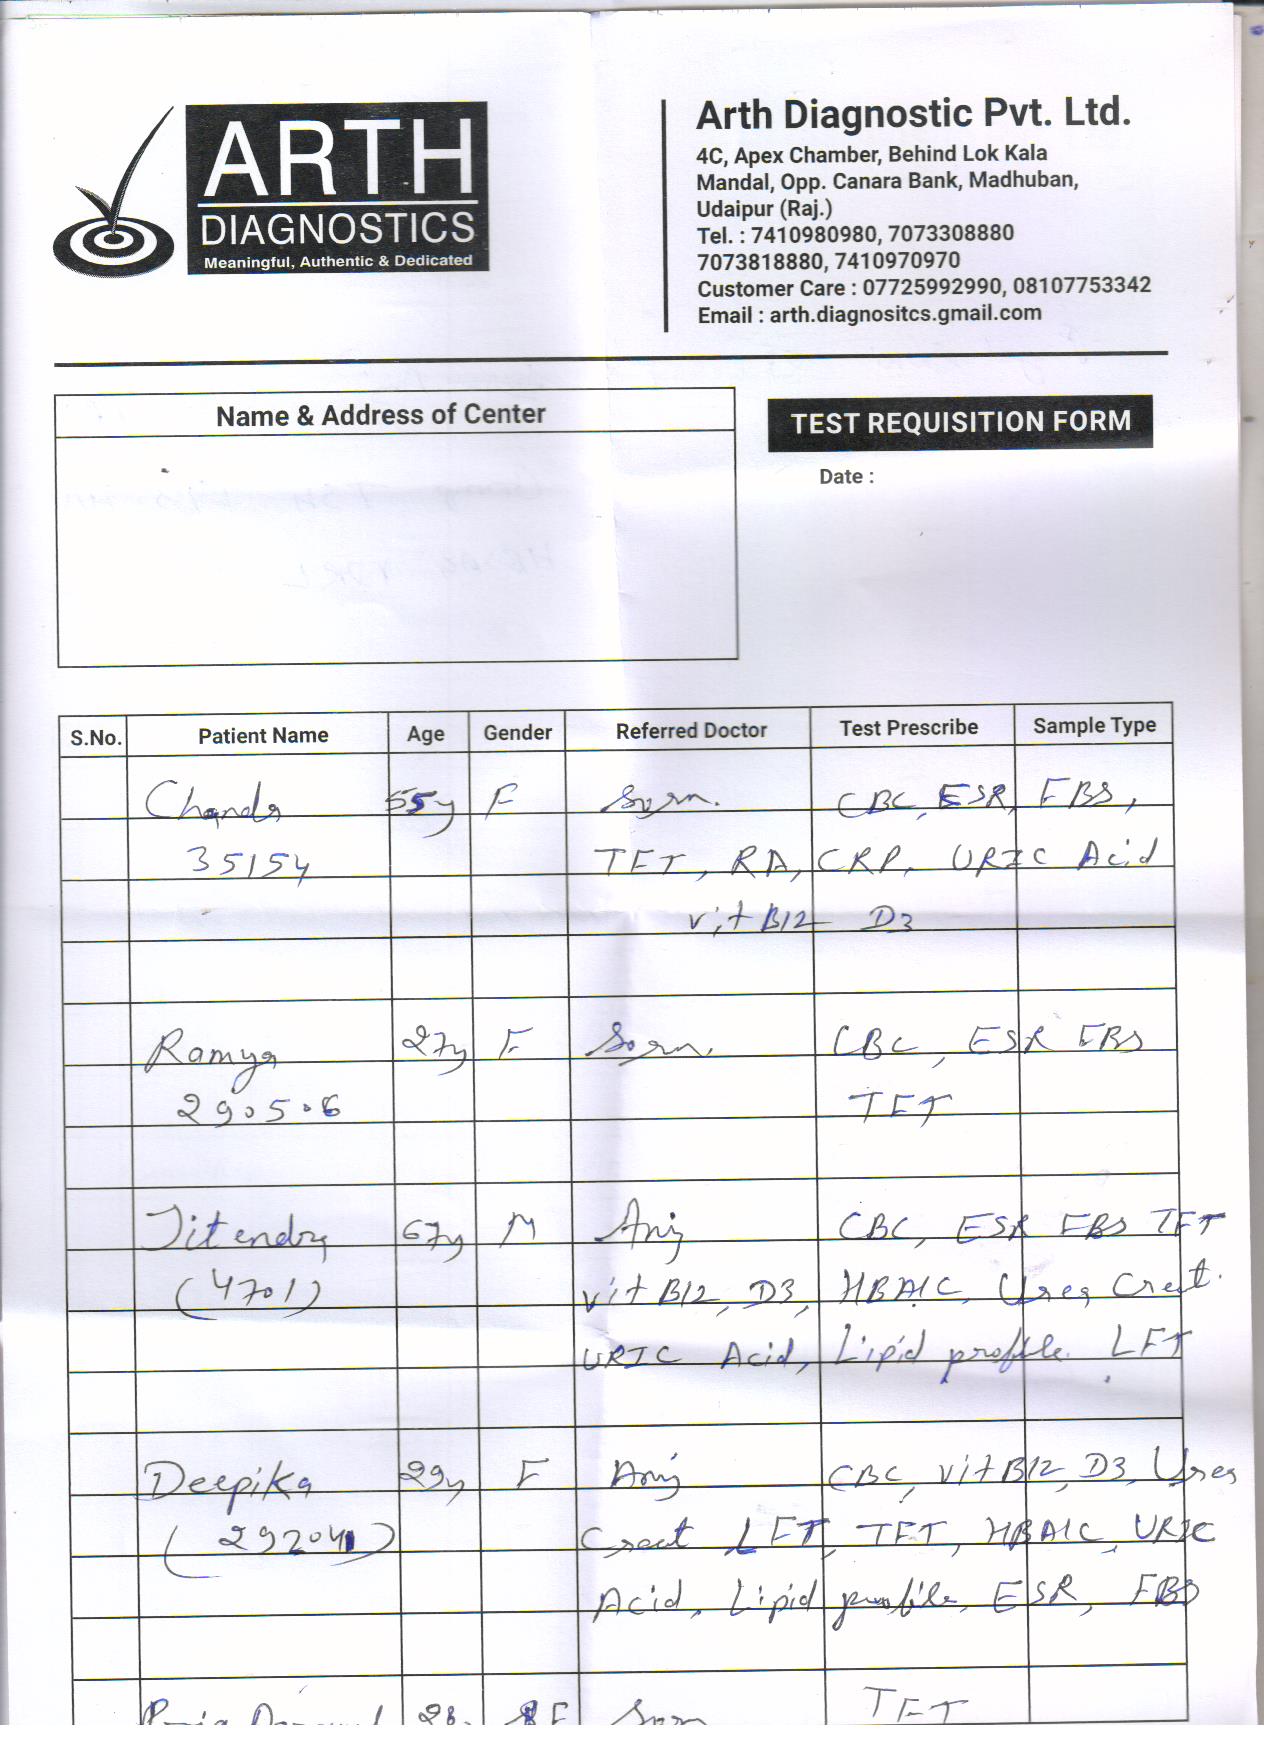 ARTH
DIAGNOSTICS
Meaningful, Authentic & Dedicated
Arth Diagnostic Pvt. Ltd.
4C, Apex Chamber, Behind Lok Kala
Mandal, Opp. Canara Bank, Madhuban,
Udaipur (Raj.)
Tel. : 7410980980, 7073308880
7073818880, 7410970970
Customer Care : 07725992990, 08107753342
Email : arth.diagnositcs.gmail.com
Name & Address of Center
TEST REQUISITION FORM
Date :
S.No. Patient Name Age Gender Referred Doctor Test Prescribe Sample Type
Chanda 55y F CBC, ESR, FBS,
35154 TFT, RA, CRP, URIC Acid
vit B12 D3
Ramya 27y F CBC, ESR FBS
290506 TFT
Jitendra 67y M CBC, ESR FBS TFT
(4701) vit B12, D3, HBA1C, Urea Creat.
URIC Acid, Lipid profile. LFT
Deepika 29y F CBC, vit B12, D3, Urea
(29204) Creat LFT, TFT, HBA1C, URIC
Acid, Lipid profile, ESR, FBS
F TFT